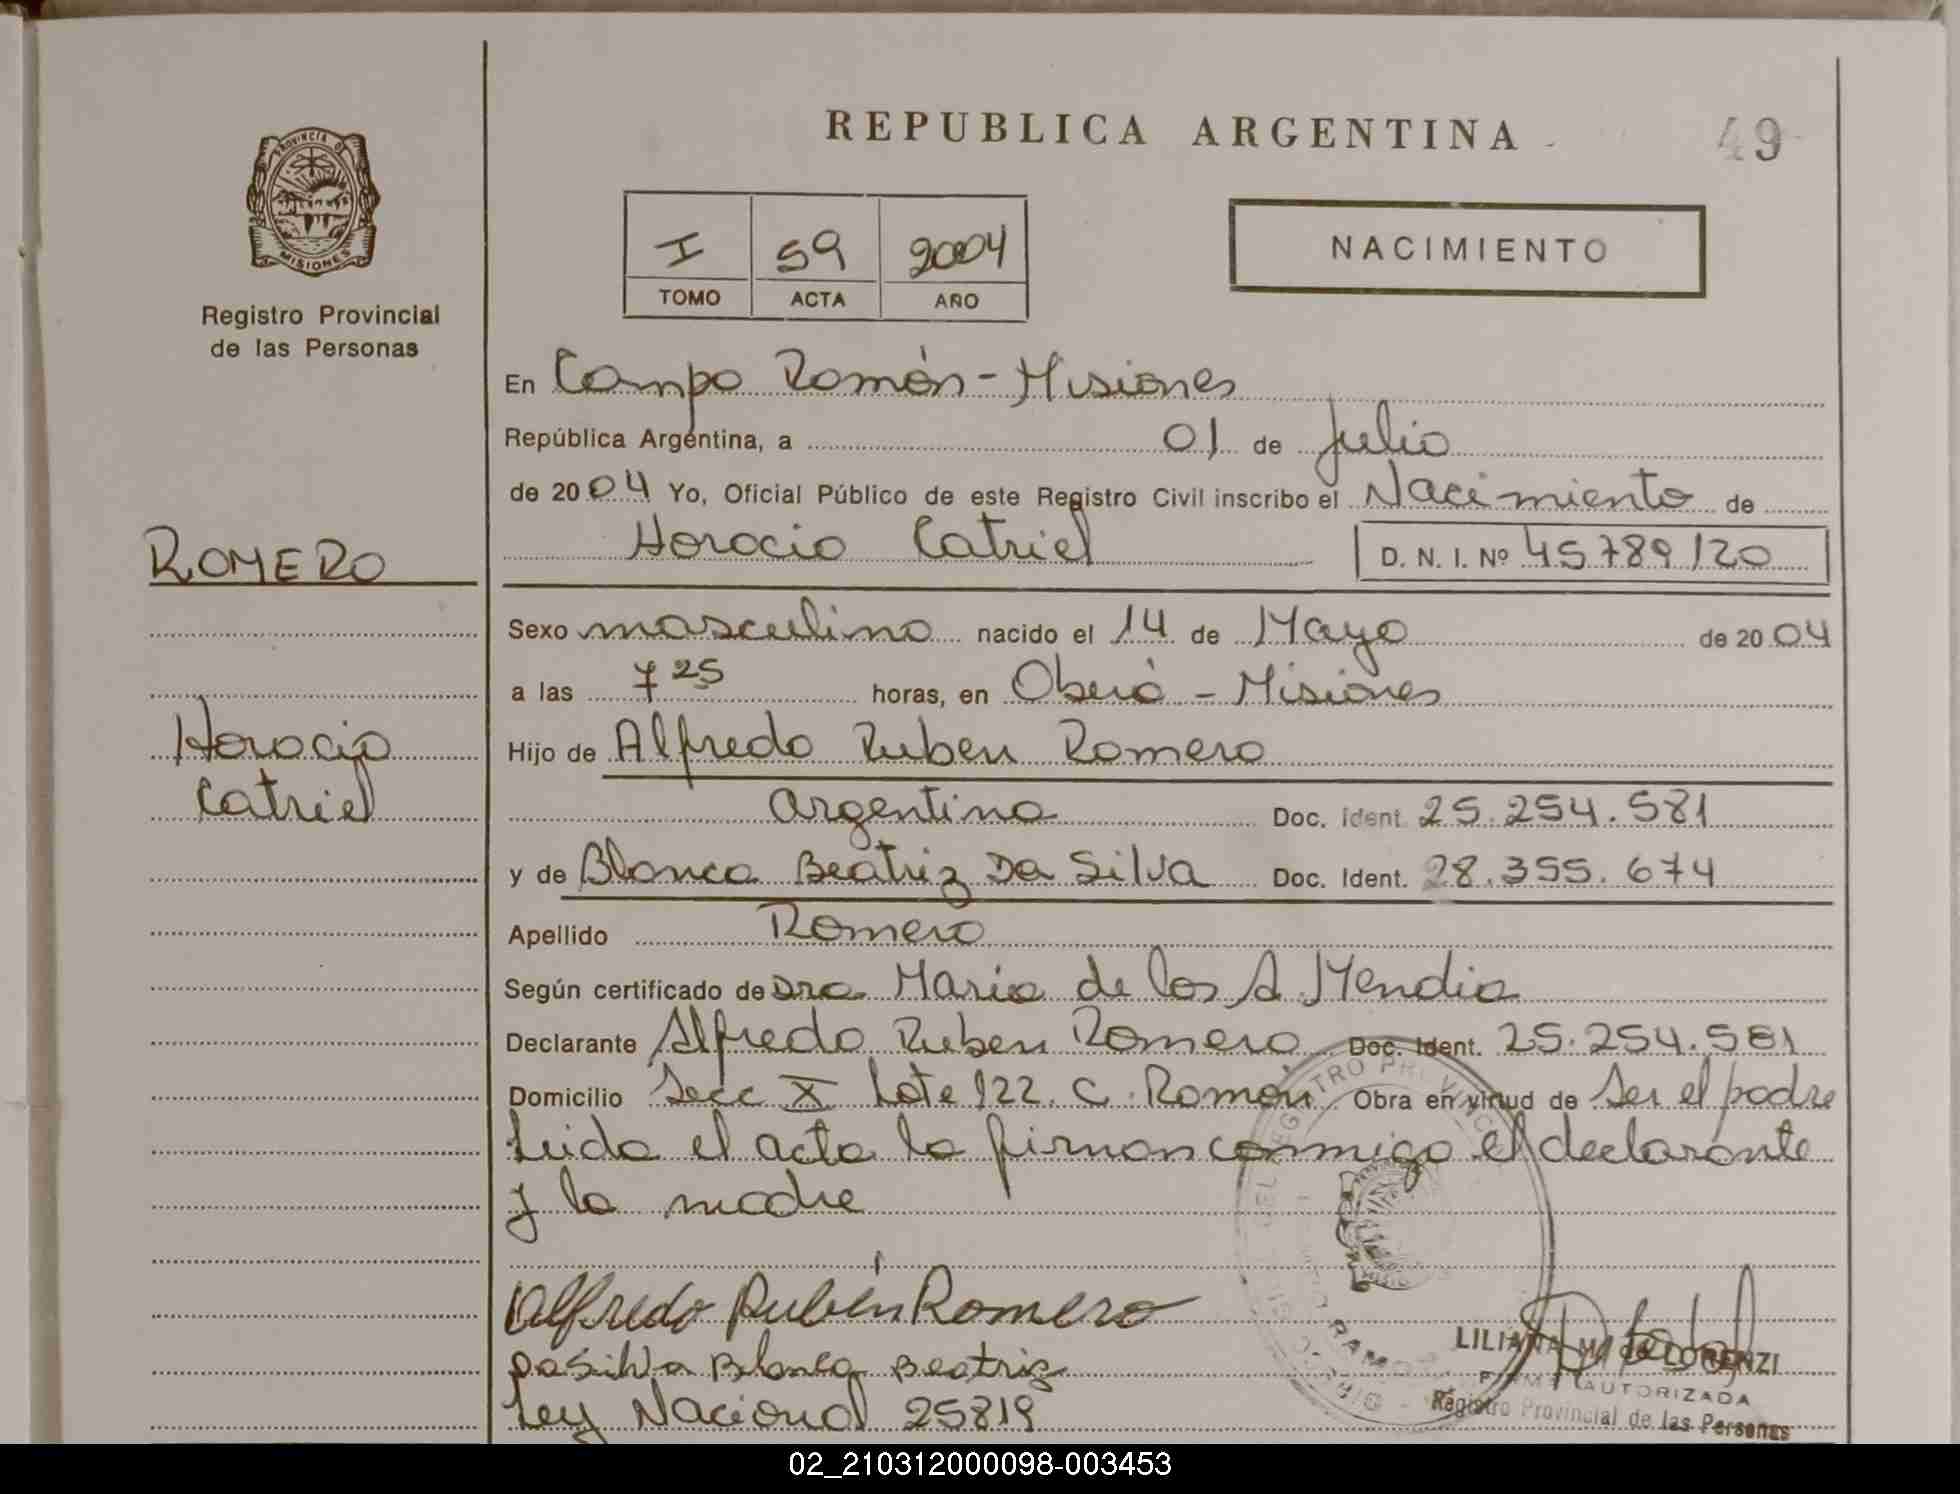 REPUBLICA ARGENTINA
49
PROVINCIA DE
MISIONES
Registro Provincial
de las Personas
I 59 2004
TOMO ACTA AÑO
NACIMIENTO
En Campo Ramón - Misiones
República Argentina, a 01 de Julio
de 2004 Yo, Oficial Público de este Registro Civil inscribo el Nacimiento de
Horacio Catriel D. N. I. Nº 45789120
ROMERO
Sexo masculino nacido el 14 de Mayo de 2004
a las 7 25 horas, en Oberá - Misiones
Horacio
Catriel
Hijo de Alfredo Ruben Romero
argentino Doc. Ident. 25.254.581
y de Blanca Beatriz Da Silva Doc. Ident. 28.355.674
Apellido Romero
Según certificado de Dra Maria de los A. Mendia
Declarante Alfredo Ruben Romero Doc. Ident. 25.254.581
Domicilio Secc X Lote 122. C. Ramón Obra en virtud de Ser el padre
Leida el acta la firman conmigo el declarante
y la madre
Alfredo Rubén Romero
Dasilva Blanca Beatriz
Ley Nacional 25819
LILIANA M. de LORENZI
FIRMA AUTORIZADA
Registro Provincial de las Personas
02_210312000098-003453